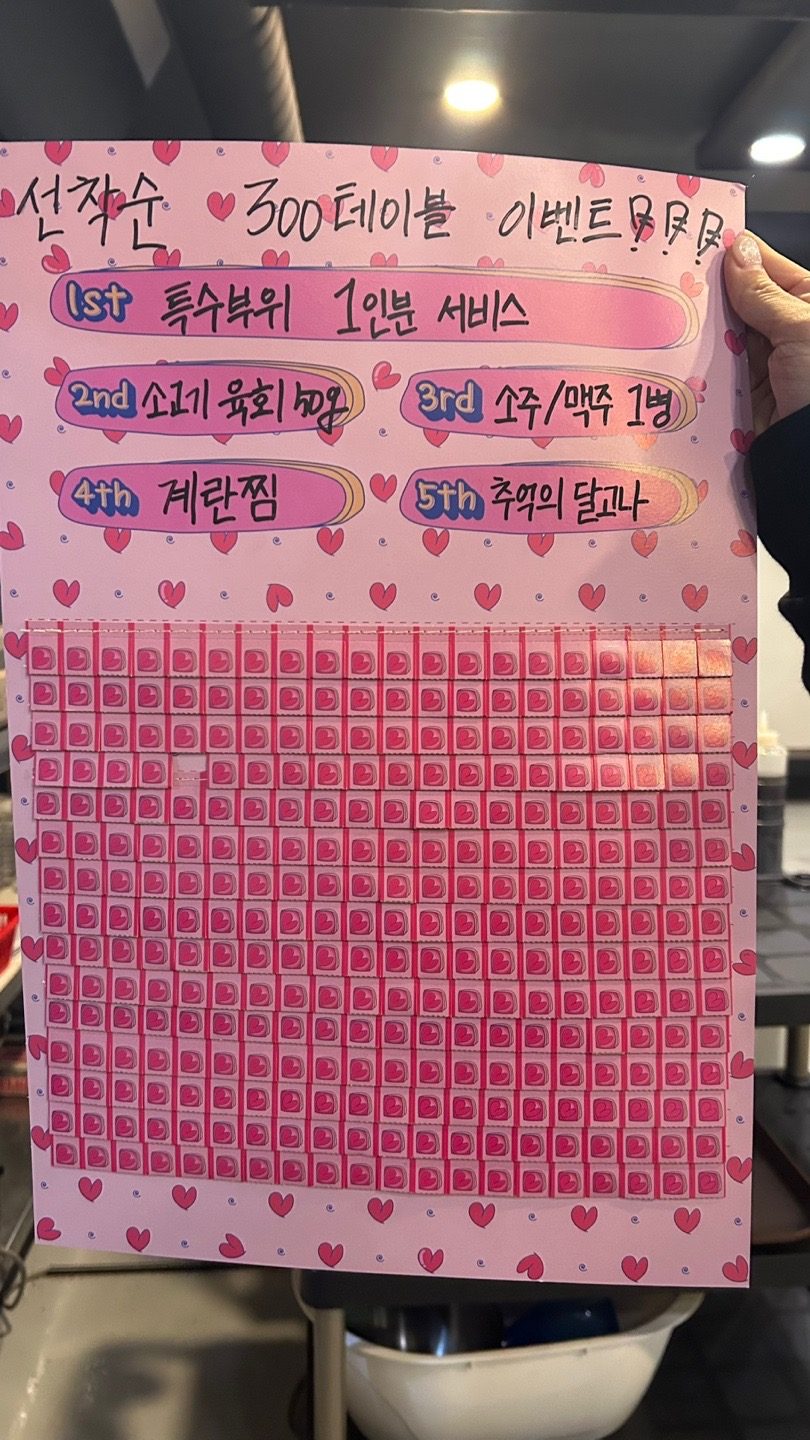 선착순 300테이블 이벤트!!!
1st 특수부위 1인분 서비스
2nd 소고기 육회 50g 3rd 소주/맥주 1병
4th 계란찜 5th 추억의 달고나